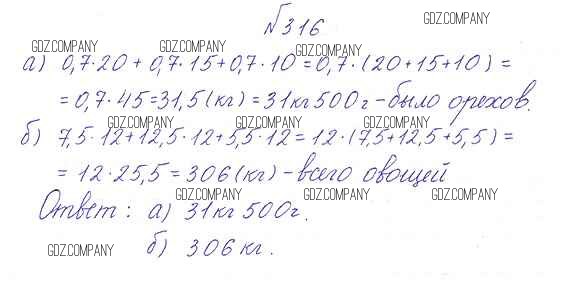 №316
GDZ.COMPANY
GDZ.COMPANY GDZ.COMPANY GDZ.COMPANY
а) 0,7·20 + 0,7·15 + 0,7·10 = 0,7·(20+15+10) =
= 0,7·45 = 31,5 (кг) = 31 кг 500 г – было орехов.
GDZ.COMPANY GDZ.COMPANY GDZ.COMPANY
б) 7,5·12 + 12,5·12 + 5,5·12 = 12·(7,5+12,5+5,5) =
= 12·25,5 = 306 (кг) – всего овощей
GDZ.COMPANY GDZ.COMPANY GDZ.COMPANY
Ответ: а) 31 кг 500 г.
GDZ.COMPANY б) 306 кг.